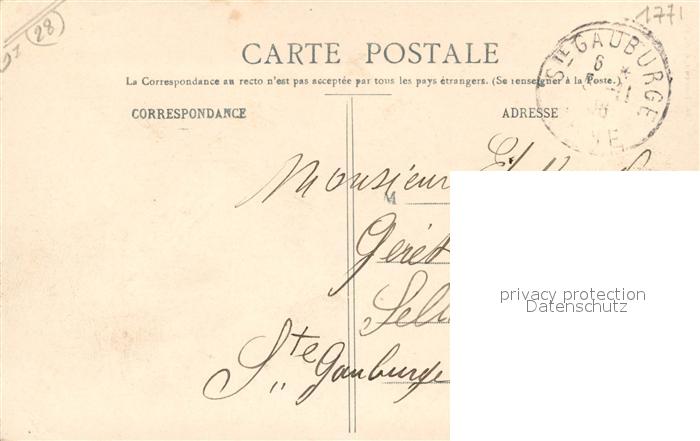 28
1771
CARTE POSTALE
La Correspondance au recto n'est pas acceptée par tous les pays étrangers. (Se renseigner à la Poste.)
CORRESPONDANCE
ADRESSE
Ste GAUBURGE
6
Monsieur
M
Sell
Ste Gauburge
privacy protection
Datenschutz